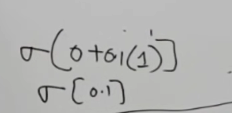 σ(0+0.1(1)]
σ[0.1]